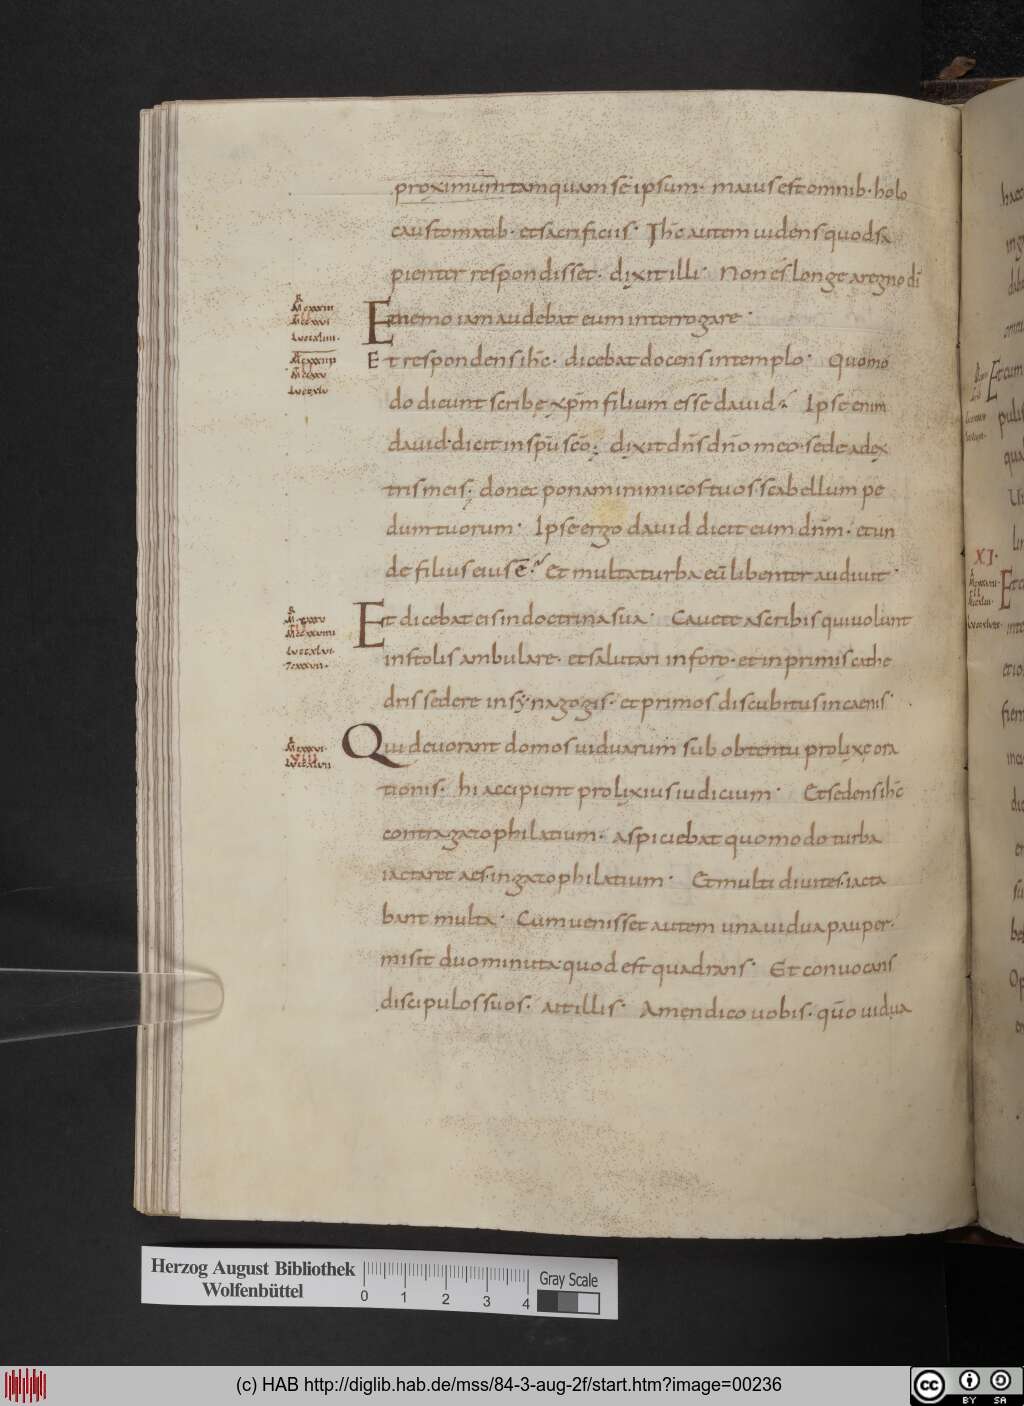 proximum tamquam sē ipsum· maius est omnib· holo
caustomatib· et sacrificiis· Ihc̄ autem uidens quod sa
pienter respondisset· dixit illi· Non ēs longe a regno dī
Et nemo iam audebat eum interrogare·
Et respondens ihc̄· dicebat docens in templo· Quomo
do dicunt scribę xp̄m filium esse dauid· Ipse enim
dauid· dicit in spū scō· dixit dn̄s dn̄o meo· sede a dex
tris meis· donec ponam inimicos tuos· scabellum pe
dum tuorum· Ipse ergo dauid dicit eum dn̄m· et un
de filius eius ē· Et multa turba eū libenter audiuit·
Et dicebat eis in doctrina sua· Cauete a scribis qui uolunt
in stolis ambulare· et salutari in foro· et in primis cathe
dris sedere in synagogis· et primos discubitus in caenis·
Qui deuorant domos uiduarum sub obtentu prolixe ora
tionis· hi accipient prolixius iudicium· Et sedens ihc̄
contra gazophilatium· aspiciebat quomodo turba
iactaret aes· in gazophilatium· Et multi diuites· iacta
bant multa· Cum uenisset autem una uidua pauper·
misit duo minuta· quod est quadrans· Et conuocans
discipulos suos· ait illis· Amen dico uobis· qūo uidua
XI·
Herzog August Bibliothek
Wolfenbüttel
0 1 2 3 4
Gray Scale
(c) HAB http://diglib.hab.de/mss/84-3-aug-2f/start.htm?image=00236
cc BY SA